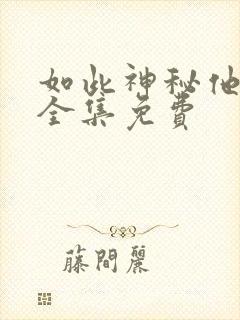 如此神秘他
全集免费
藤間麗